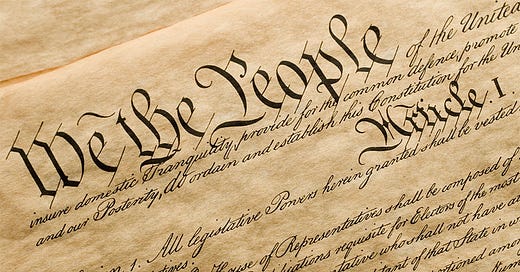 We the People of the United
insure domestic Tranquility, provide for the common defence, promote
and our Posterity, do ordain and establish this Constitution for the Uni
Article. I.
n. 1. All legislative Powers herein granted shall be vested
House of Representatives shall be composed of
ications requisite for Electors of the most
entative who shall not have at
itant of that State in w